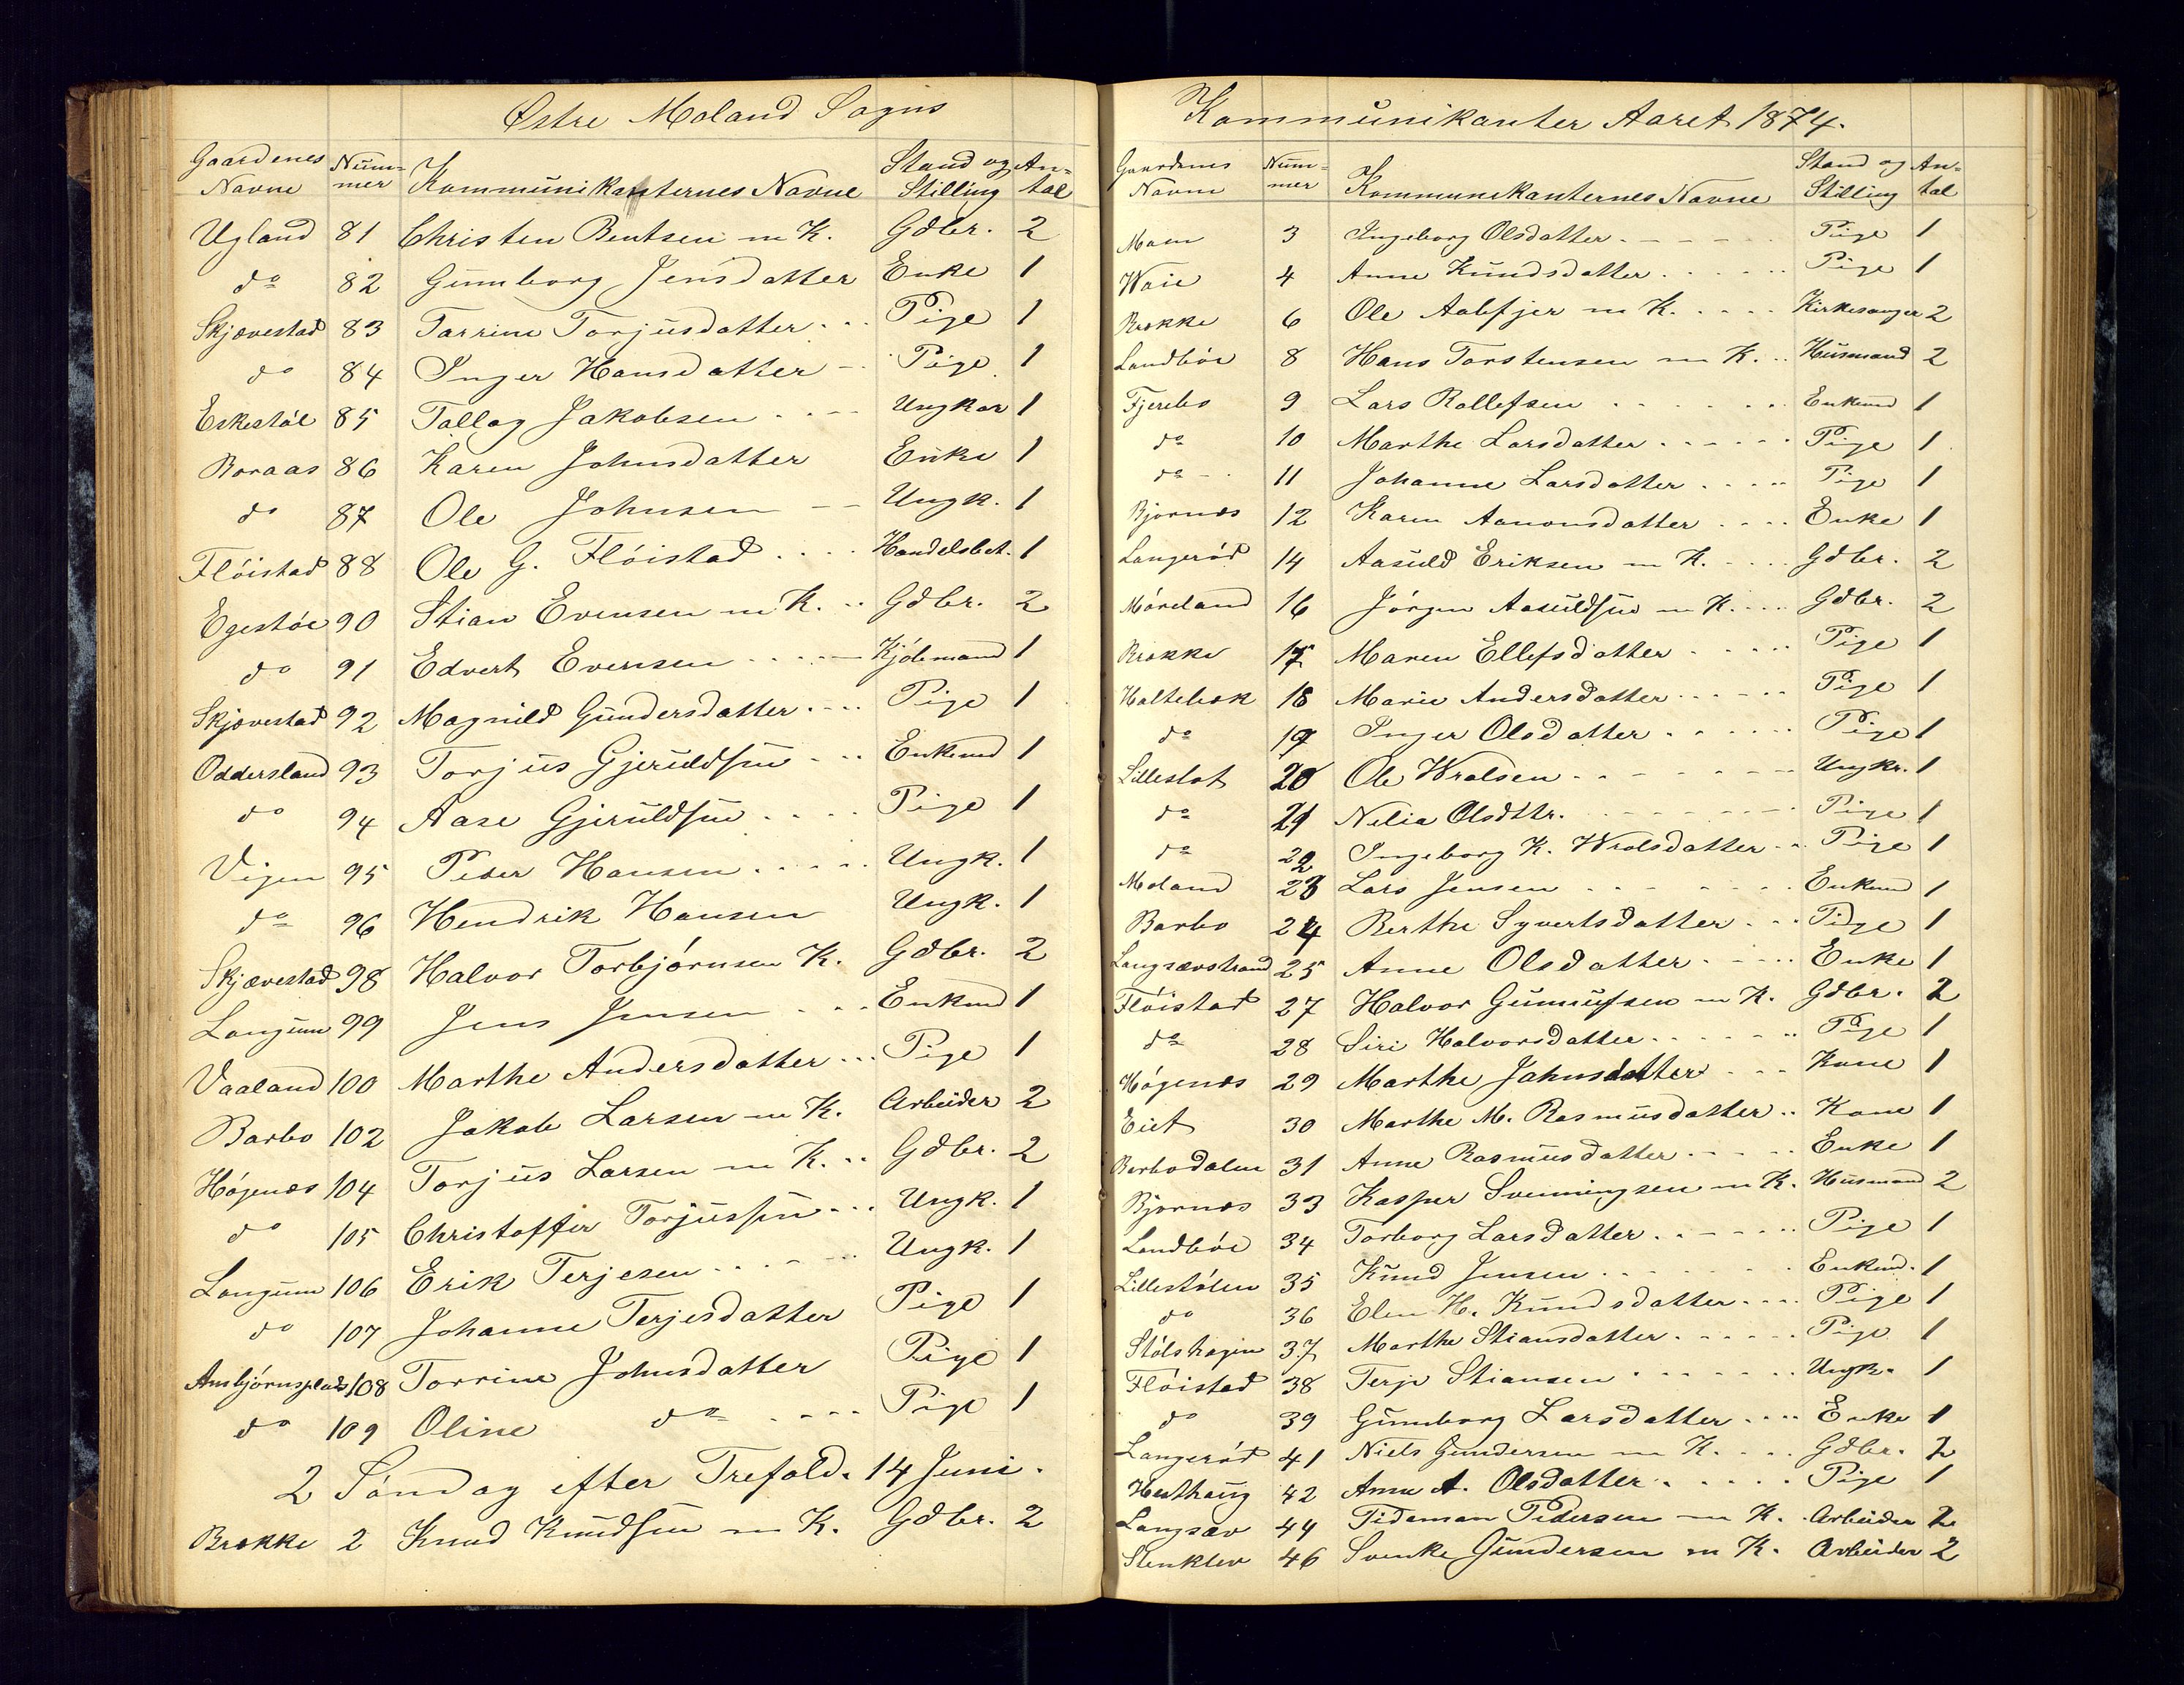 Østre Moland Sogns
Gaardenes Navne Num-mer Kommunikanternes Navne Stand og Stilling An-tal
Ugland 81 Christen Bentsen m K. Gdbr. 2
do 82 Gunnborg Jensdatter Enke 1
Skjævestad 83 Tarrine Torjusdatter Pige 1
do 84 Inger Hansdatter Pige 1
Eskestøl 85 Tallag Jakobsen Ungkar 1
Boraas 86 Karen Johnsdatter Enke 1
do 87 Ole Johnsen Ungk. 1
Fløistad 88 Ole G. Fløistad Handelsbet. 1
Egestøe 90 Stian Evensen m K. Gdbr. 2
do 91 Edvert Evensen Kjøbmand 1
Skjævestad 92 Magnild Gundersdatter Pige 1
Oddersland 93 Torjus Gjeruldsen Enkemd 1
do 94 Aase Gjeruldsen Pige 1
Vigen 95 Peder Hansen Ungk. 1
do 96 Hendrik Hansen Ungk. 1
Skjævestad 98 Halvor Torbjørnsen K. Gdbr. 2
Langum 99 Jens Jensen Enkmd 1
Vaaland 100 Marthe Andersdatter Pige 1
Barbo 102 Jakob Larsen m K. Arbeider 2
Høgenæs 104 Torjus Larsen m K. Gdbr. 2
do 105 Christoffer Torjussen Ungk. 1
Langum 106 Erik Terjesen Ungk. 1
do 107 Johanne Terjesdatter Pige 1
Ansbjørnsplads 108 Torrine Johnsdatter Pige 1
do 109 Oline do Pige 1
2 Søndag efter Trefold. 14 Juni.
Brække 2 Knud Knudsen m K. Gdbr. 2
Kommunikanter Aaret 1874.
Gaardenes Navne Num-mer Kommunikanternes Navne Stand og Stilling An-tal
3 Ingeborg Olsdatter Pige 1
4 Anne Kundsdatter Pige 1
Brække 6 Ole m K. Kirkesanger 2
Landbøe 8 Hans Torstensen m K. Husmand 2
Fjerebo 9 Lars Rollefsen Enkemd 1
do 10 Marthe Larsdatter Pige 1
do 11 Johanne Larsdatter Pige 1
Bjørnæs 12 Karen Aanonsdatter Enke 1
Langerød 14 Aasuld Eriksen m K. Gdbr. 2
Møreland 16 Jørgen Aasuldsen m K. Gdbr. 2
Brække 17 Maren Ellefsdatter Pige 1
Holtebæk 18 Marie Andersdatter Pige 1
do 19 Inger Olsdatter Pige 1
Lilleslot 20 Ole Wralsen Ungkr. 1
do 21 Nelia Olsdttr. Pige 1
do 22 Ingeborg K. Wralsdatter Pige 1
Moland 23 Lars Jensen Enkmd 1
Barbo 24 Berthe Syvertsdatter Pidge 1
Langsævstrand 25 Anne Olsdatter Enke 1
Fløistad 27 Halvor Gunnufsen m K. Gdbr. 2
do 28 Siri Halvorsdatter Pige 1
Høgenæs 29 Marthe Jahnsdatter Kone 1
Eiet 30 Marthe M. Rasmusdatter Kone 1
Barbodalen 31 Anne Rasmusdatter Enke 1
Bjørnæs 33 Kasper Svenningsen m K. Husmand 2
Landbøe 34 Torborg Larsdatter Pige 1
Lillestølen 35 Knud Jensen Enkmd. 1
do 36 Elen H. Kundsdatter Pige 1
Stølshagen 37 Marthe Stiansdatter Pige 1
Fløistad 38 Terje Stiansen Ungk. 1
do 39 Gunnborg Larsdatter Enke 1
Langerød 41 Niels Gundersen m K. Gdbr. 2
Hesthaug 42 Anne A. Olsdatter Pige 1
Langsæv 44 Tideman Pedersen m K. Arbeider 2
Stenklev 46 Svenke Gundersen m K. Arbeider 2